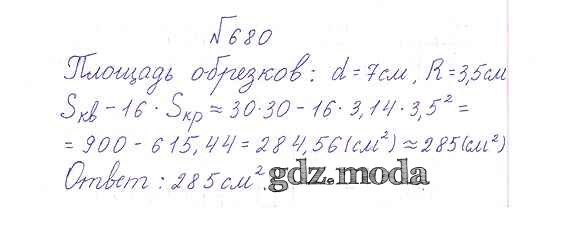 №680
Площадь обрезков: d=7см, R=3,5см
Sкв - 16 · Sкр ≈ 30·30 - 16·3,14·3,5² =
= 900 - 615,44 = 284,56 (см²) ≈ 285 (см²)
Ответ: 285 см².
gdz.moda